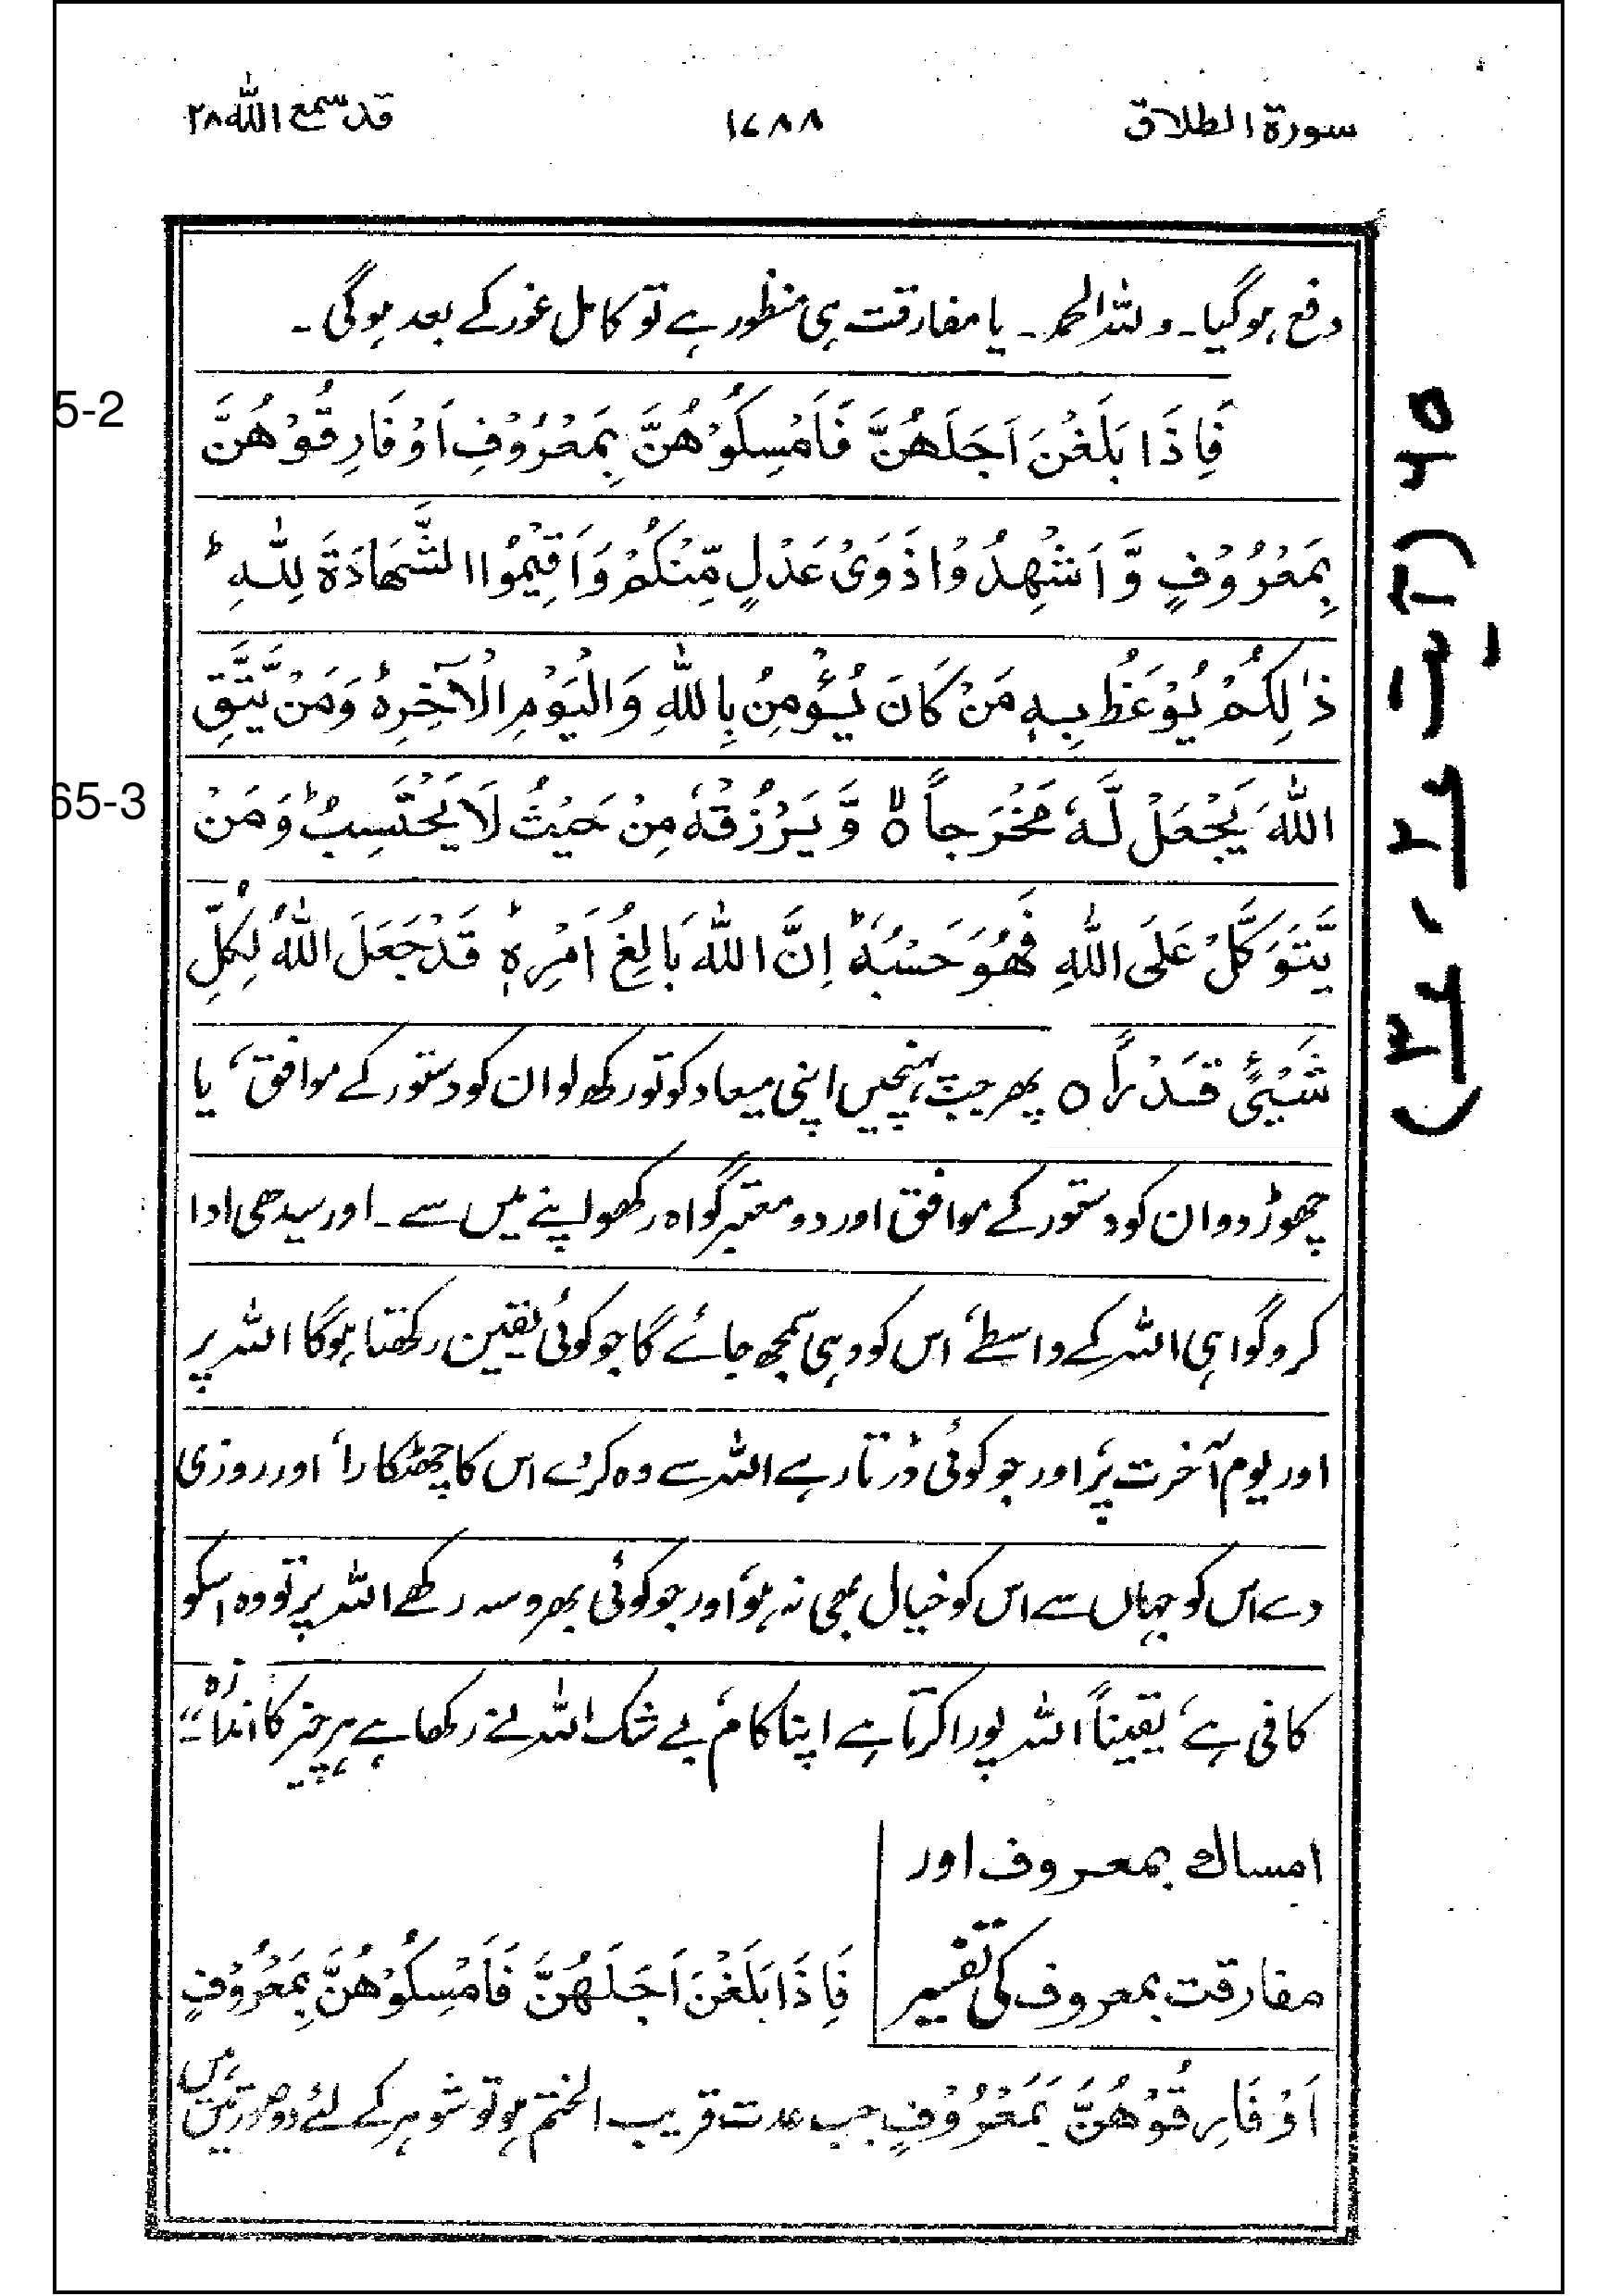 سورۃ الطلاق
۱۷۸۸
قد سمع اللہ ۲۸
دفع ہوگیا۔ وللہ الحمد۔ یا مفارقت ہی منظور ہے تو کامل غور کے بعد ہوگی۔
5-2
فَاِذَا بَلَغْنَ اَجَلَهُنَّ فَاَمْسِكُوْهُنَّ بِمَعْرُوْفٍ اَوْ فَارِقُوْهُنَّ
بِمَعْرُوْفٍ وَّاَشْهِدُوْا ذَوَیْ عَدْلٍ مِّنْكُمْ وَاَقِیْمُوا الشَّهَادَةَ لِلّٰهِ ؕ
ذٰلِكُمْ یُوْعَظُ بِهٖ مَنْ كَانَ یُؤْمِنُ بِاللّٰهِ وَالْیَوْمِ الْآخِرِ ؕ وَمَنْ یَّتَّقِ
65-3
اللّٰهَ یَجْعَلْ لَّهٗ مَخْرَجاً ۙ وَّیَرْزُقْهُ مِنْ حَیْثُ لَا یَحْتَسِبُ ؕ وَمَنْ
یَّتَوَكَّلْ عَلَی اللّٰهِ فَهُوَ حَسْبُهٗ ؕ اِنَّ اللّٰهَ بَالِغُ اَمْرِهٖ ؕ قَدْ جَعَلَ اللّٰهُ لِكُلِّ
شَیْئٍ قَدْراً ○ پھر جب پہنچیں اپنی میعاد کو تو رکھ لو ان کو دستور کے موافق، یا
چھوڑ دو ان کو دستور کے موافق اور دو معتبر گواہ رکھو اپنے میں سے۔ اور سیدھی ادا
کرو گواہی اللہ کے واسطے، اس کو وہی سمجھ جائے گا جو کوئی یقین رکھتا ہوگا اللہ پر
اور یوم آخرت پر، اور جو کوئی ڈرتا رہے اللہ سے وہ کر دے اس کا چھٹکارا، اور روزی
دے اس کو جہاں سے اس کو خیال بھی نہ ہو، اور جو کوئی بھروسہ رکھے اللہ پر تو وہ اسکو
کافی ہے، یقیناً اللہ پورا کرتا ہے اپنا کام، بے شک اللہ نے رکھا ہے ہر چیز کا اندازہ“۔
امساک بمعروف اور
مفارقت بمعروف کی تفسیر
فَاِذَا بَلَغْنَ اَجَلَهُنَّ فَاَمْسِكُوْهُنَّ بِمَعْرُوْفٍ
اَوْ فَارِقُوْهُنَّ بِمَعْرُوْفٍ جب عدت قریب الختم ہو تو شوہر کے لئے دو صورتیں ہیں
۶۵ (آیت ۲، ۳)